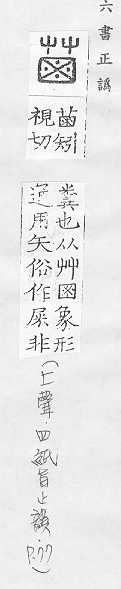 六書正譌
菌矧
視切
糞也从艸囷象形
通用矢俗作屎非
(上聲·四紙旨止韻, P.77)